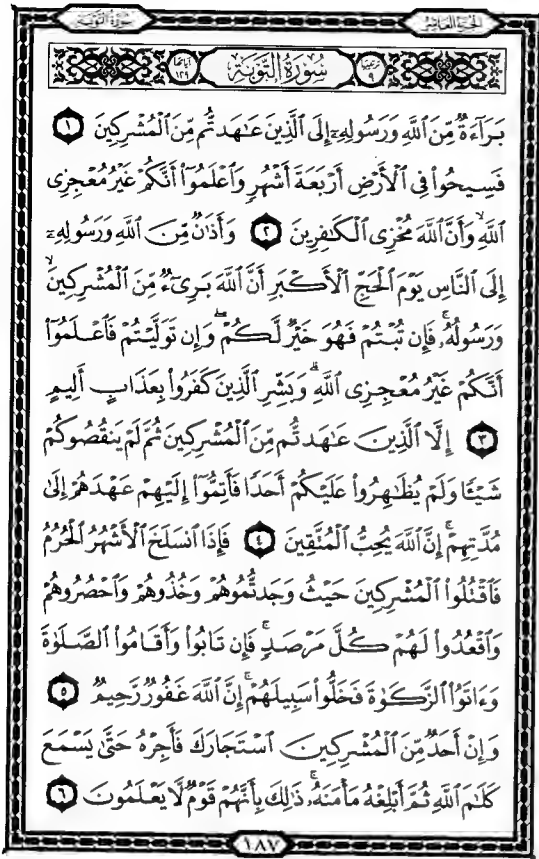 سُورَةُ التَّوْبَةِ الجُزْءُ العَاشِرُ
تَرْتِيبُهَا ٩ سُورَةُ التَّوْبَةِ آيَاتُهَا ١٢٩
بَرَآءَةٌ مِّنَ ٱللَّهِ وَرَسُولِهِۦٓ إِلَى ٱلَّذِينَ عَٰهَدتُّم مِّنَ ٱلْمُشْرِكِينَ ١
فَسِيحُوا۟ فِى ٱلْأَرْضِ أَرْبَعَةَ أَشْهُرٍ وَٱعْلَمُوٓا۟ أَنَّكُمْ غَيْرُ مُعْجِزِى
ٱللَّهِ ۙ وَأَنَّ ٱللَّهَ مُخْزِى ٱلْكَٰفِرِينَ ٢ وَأَذَٰنٌ مِّنَ ٱللَّهِ وَرَسُولِهِۦٓ
إِلَى ٱلنَّاسِ يَوْمَ ٱلْحَجِّ ٱلْأَكْبَرِ أَنَّ ٱللَّهَ بَرِىٓءٌ مِّنَ ٱلْمُشْرِكِينَ ۙ
وَرَسُولُهُۥ ۚ فَإِن تُبْتُمْ فَهُوَ خَيْرٌ لَّكُمْ ۖ وَإِن تَوَلَّيْتُمْ فَٱعْلَمُوٓا۟
أَنَّكُمْ غَيْرُ مُعْجِزِى ٱللَّهِ ۗ وَبَشِّرِ ٱلَّذِينَ كَفَرُوا۟ بِعَذَابٍ أَلِيمٍ
٣ إِلَّا ٱلَّذِينَ عَٰهَدتُّم مِّنَ ٱلْمُشْرِكِينَ ثُمَّ لَمْ يَنقُصُوكُمْ
شَيْـًٔا وَلَمْ يُظَٰهِرُوا۟ عَلَيْكُمْ أَحَدًا فَأَتِمُّوٓا۟ إِلَيْهِمْ عَهْدَهُمْ إِلَىٰ
مُدَّتِهِمْ ۚ إِنَّ ٱللَّهَ يُحِبُّ ٱلْمُتَّقِينَ ٤ فَإِذَا ٱنسَلَخَ ٱلْأَشْهُرُ ٱلْحُرُمُ
فَٱقْتُلُوا۟ ٱلْمُشْرِكِينَ حَيْثُ وَجَدتُّمُوهُمْ وَخُذُوهُمْ وَٱحْصُرُوهُمْ
وَٱقْعُدُوا۟ لَهُمْ كُلَّ مَرْصَدٍ ۚ فَإِن تَابُوا۟ وَأَقَامُوا۟ ٱلصَّلَوٰةَ
وَءَاتَوُا۟ ٱلزَّكَوٰةَ فَخَلُّوا۟ سَبِيلَهُمْ ۚ إِنَّ ٱللَّهَ غَفُورٌ رَّحِيمٌ ٥
وَإِنْ أَحَدٌ مِّنَ ٱلْمُشْرِكِينَ ٱسْتَجَارَكَ فَأَجِرْهُ حَتَّىٰ يَسْمَعَ
كَلَٰمَ ٱللَّهِ ثُمَّ أَبْلِغْهُ مَأْمَنَهُۥ ۚ ذَٰلِكَ بِأَنَّهُمْ قَوْمٌ لَّا يَعْلَمُونَ ٦
١٨٧